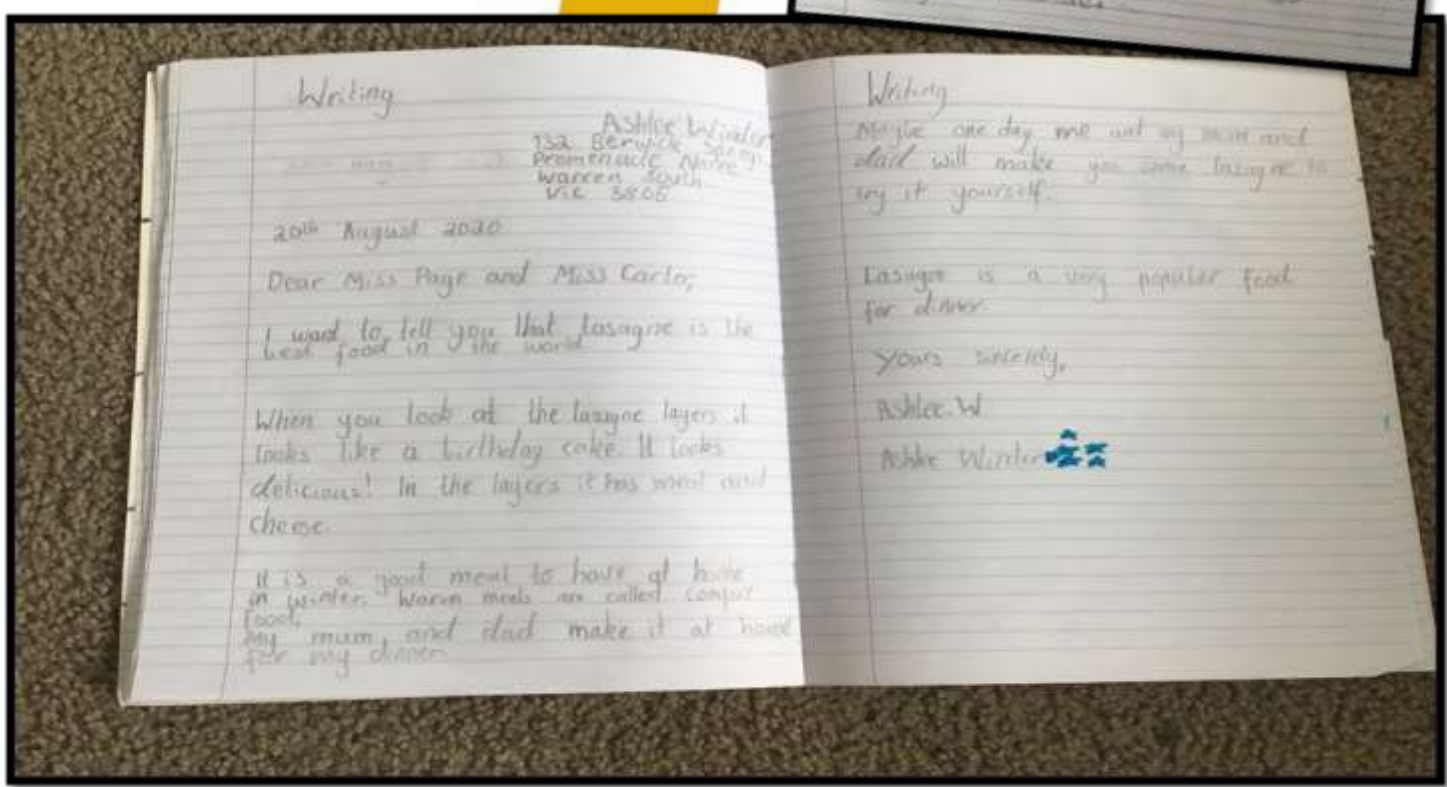 Writing
Ashlee Winder
132 Berwick Springs
Promenade Narre
Warren South
Vic 3805
20th August 2020
Dear Miss Page and Miss Carter,
I want to tell you that lasagne is the
best food in the world
When you look at the lasagne layers it
looks like a birthday cake. It looks
delicious! In the layers it has meat and
cheese.
It is a good meal to have at home
in winter. Warm meals are called
food.
My mum and dad make it at home
for my dinner.
Writing
Maybe one day me and my mum and
dad will make you some lasagne to
try it yourself.
Lasagne is a very popular food
for dinner.
Yours
Ashlee.W
Ashlee Winder